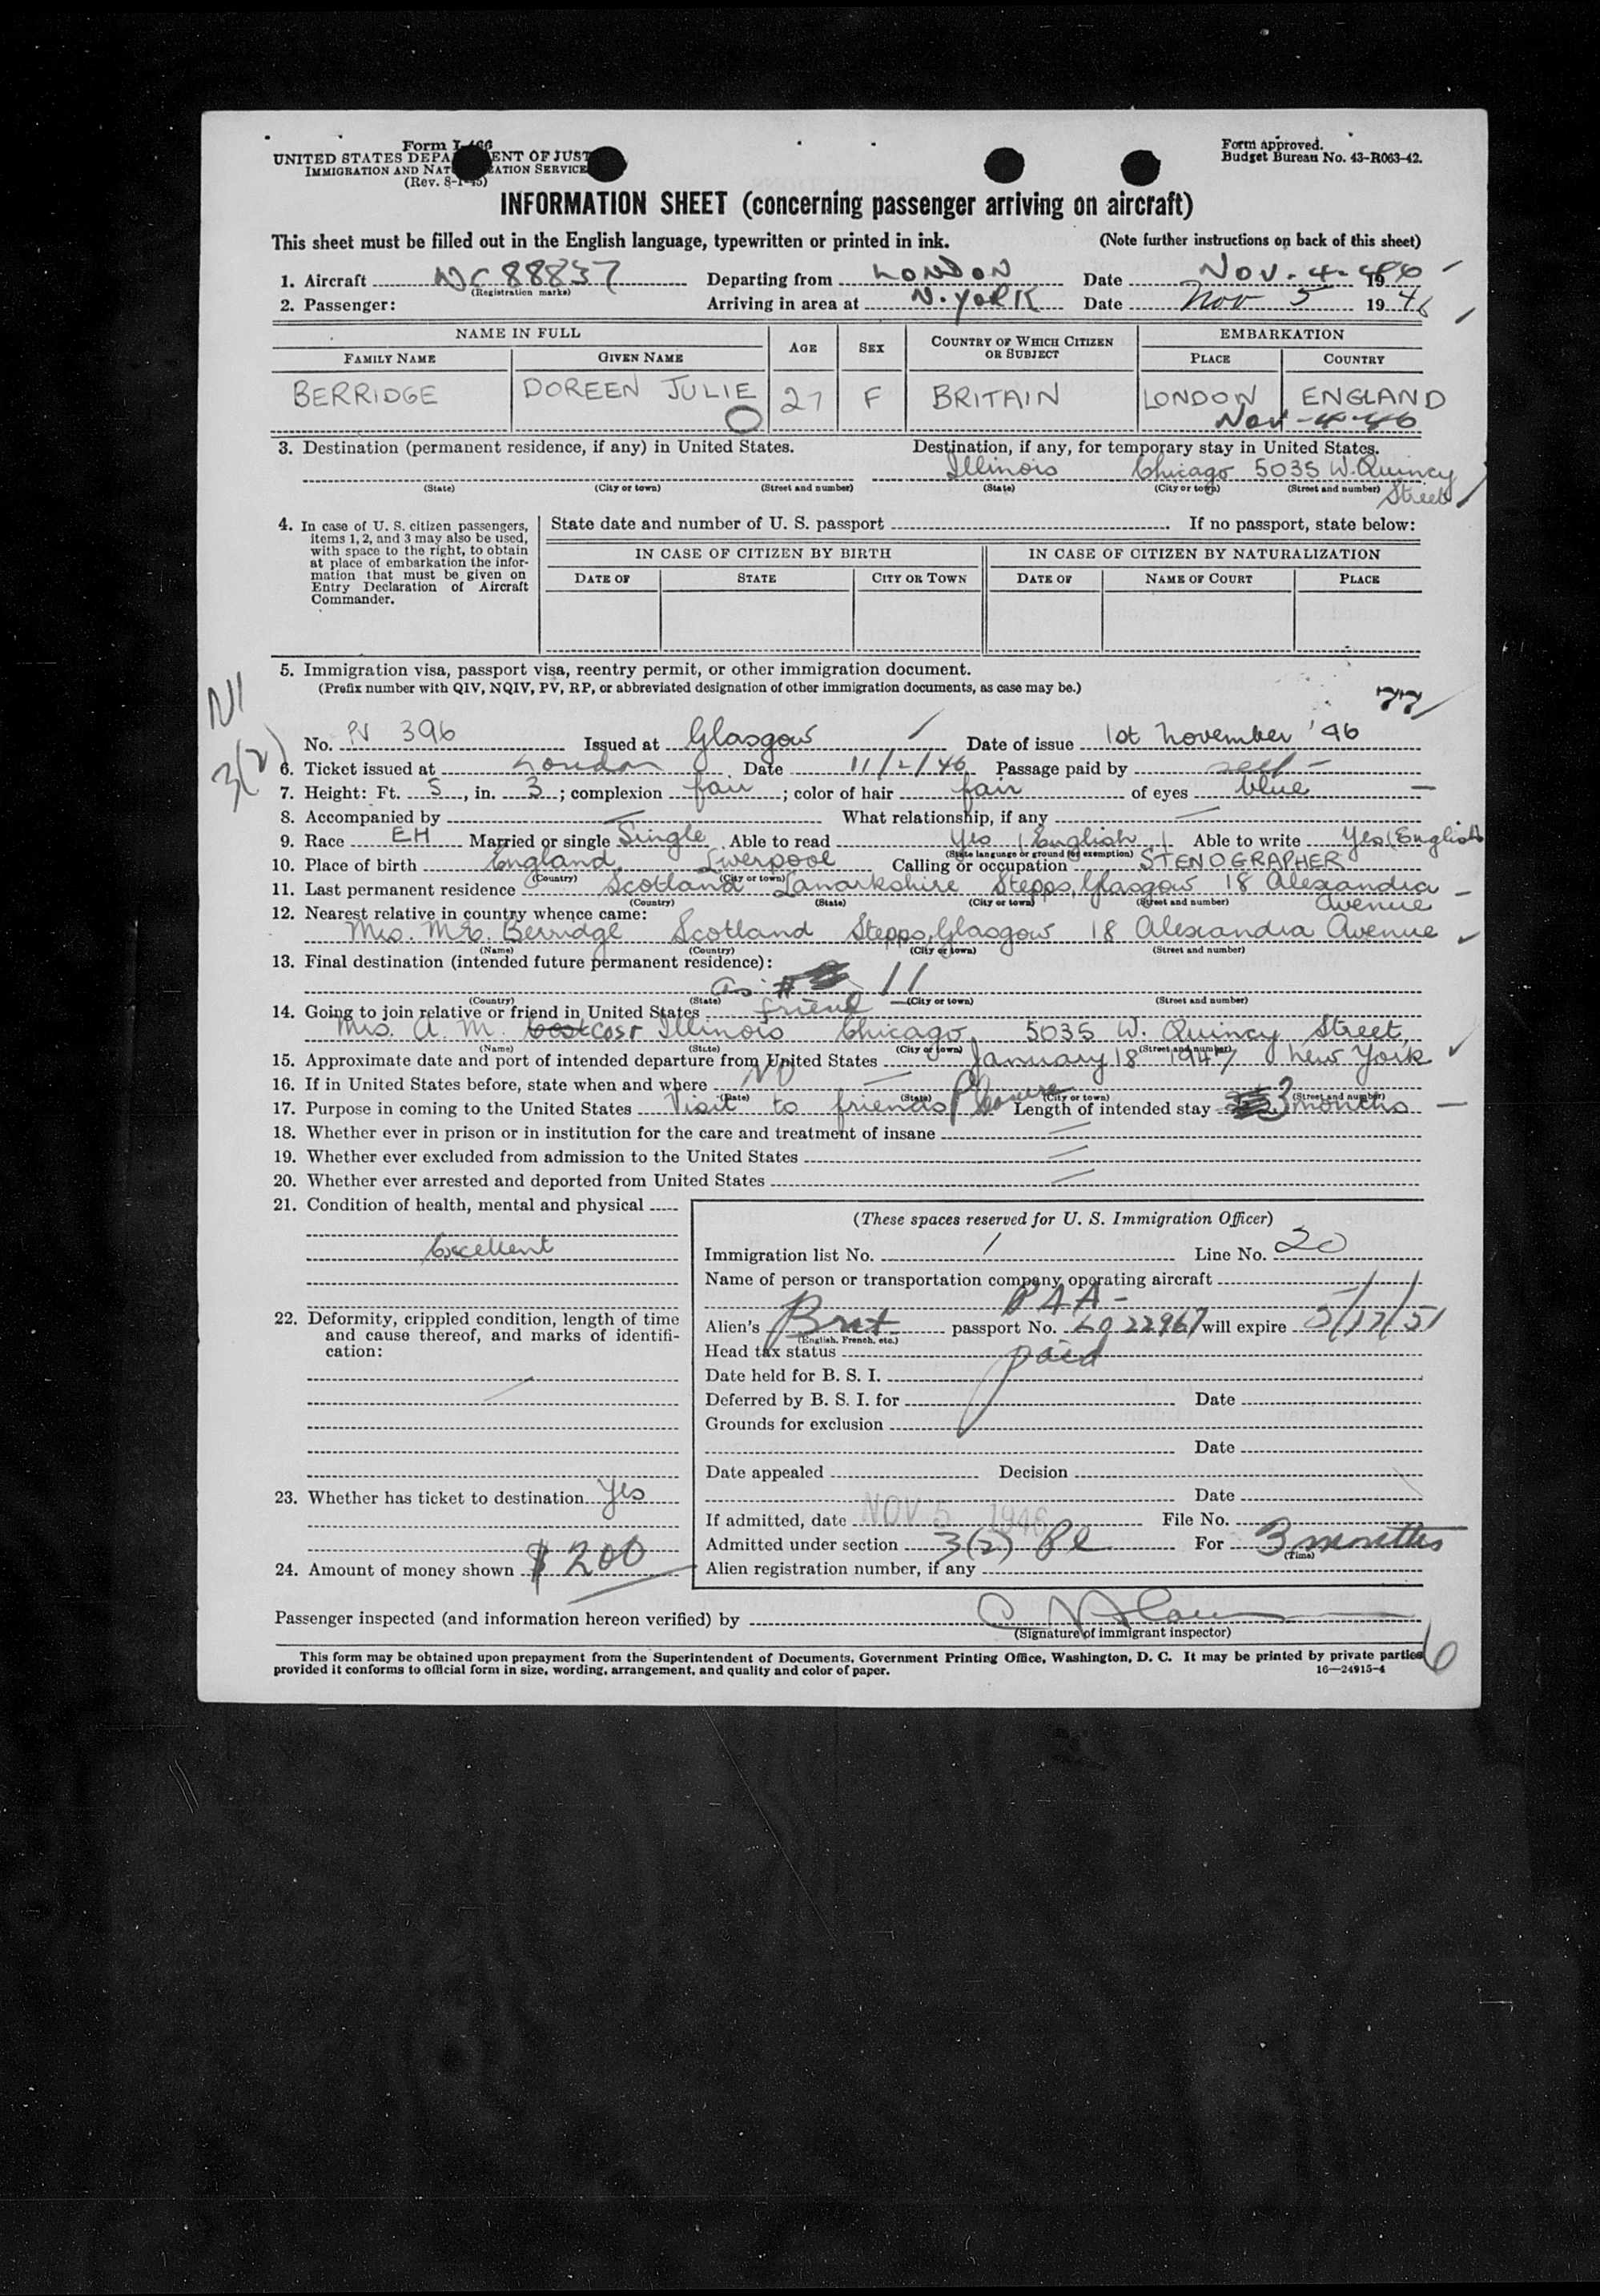 Form I-466
UNITED STATES DEPARTMENT OF JUSTICE
IMMIGRATION AND NATURALIZATION SERVICE
(Rev. 8-1-45)
Form approved.
Budget Bureau No. 43-R063-42.
INFORMATION SHEET (concerning passenger arriving on aircraft)
This sheet must be filled out in the English language, typewritten or printed in ink. (Note further instructions on back of this sheet)
1. Aircraft NC 88837 Departing from LONDON Date Nov. 4- 1946
(Registration marks)
2. Passenger: Arriving in area at N. YORK Date Nov 5 1946
NAME IN FULL AGE SEX COUNTRY OF WHICH CITIZEN OR SUBJECT EMBARKATION
FAMILY NAME GIVEN NAME PLACE COUNTRY
BERRIDGE DOREEN JULIE 27 F BRITAIN LONDON ENGLAND
Nov-4-46
3. Destination (permanent residence, if any) in United States. Destination, if any, for temporary stay in United States.
Illinois Chicago 5035 W. Quincy
(State) (City or town) (Street and number) (State) (City or town) (Street and number) Street
4. In case of U. S. citizen passengers, items 1, 2, and 3 may also be used, with space to the right, to obtain at place of embarkation the information that must be given on Entry Declaration of Aircraft Commander.
State date and number of U. S. passport If no passport, state below:
IN CASE OF CITIZEN BY BIRTH IN CASE OF CITIZEN BY NATURALIZATION
DATE OF STATE CITY OR TOWN DATE OF NAME OF COURT PLACE
5. Immigration visa, passport visa, reentry permit, or other immigration document.
(Prefix number with QIV, NQIV, PV, RP, or abbreviated designation of other immigration documents, as case may be.)
77
NI
3(2)
No. PV 396 Issued at Glasgow Date of issue 1st November '46
6. Ticket issued at London Date 11/2/46 Passage paid by self -
7. Height: Ft. 5, in. 3; complexion fair; color of hair fair of eyes blue
8. Accompanied by — What relationship, if any —
9. Race EH Married or single Single Able to read Yes (English) Able to write Yes (English)
(State language or ground for exemption)
10. Place of birth England Liverpool Calling or occupation STENOGRAPHER
(Country) (City or town)
11. Last permanent residence Scotland Lanarkshire Stepps, Glasgow 18 Alexandra
(Country) (State) (City or town) (Street and number) Avenue
12. Nearest relative in country whence came:
Mrs. M.E. Berridge Scotland Stepps, Glasgow 18 Alexandra Avenue
(Name) (Country) (City or town) (Street and number)
13. Final destination (intended future permanent residence):
as # 11
(Country) (State) (City or town) (Street and number)
14. Going to join relative or friend in United States friend
Mrs. A. M. Cost Illinois Chicago 5035 W. Quincy Street,
(Name) (State) (City or town) (Street and number)
15. Approximate date and port of intended departure from United States January 18 1947 New York
16. If in United States before, state when and where No
(Date) (State) (City or town) (Street and number)
17. Purpose in coming to the United States Visit to friends Pleasure Length of intended stay 3 months
18. Whether ever in prison or in institution for the care and treatment of insane —
19. Whether ever excluded from admission to the United States —
20. Whether ever arrested and deported from United States —
21. Condition of health, mental and physical
Excellent
22. Deformity, crippled condition, length of time and cause thereof, and marks of identification:
—
23. Whether has ticket to destination Yes
24. Amount of money shown $200
(These spaces reserved for U. S. Immigration Officer)
Immigration list No. 1 Line No. 20
Name of person or transportation company operating aircraft
PAA -
Alien's Brit passport No. Lg 22967 will expire 5/17/51
(English, French, etc.)
Head tax status paid
Date held for B. S. I.
Deferred by B. S. I. for Date
Grounds for exclusion
Date
Date appealed Decision
Date
If admitted, date NOV 5 1946 File No.
Admitted under section 3(2) Pl For 3 months
(Time)
Alien registration number, if any
Passenger inspected (and information hereon verified) by
(Signature of immigrant inspector)
6
This form may be obtained upon prepayment from the Superintendent of Documents, Government Printing Office, Washington, D. C. It may be printed by private parties
provided it conforms to official form in size, wording, arrangement, and quality and color of paper. 16—24915-4